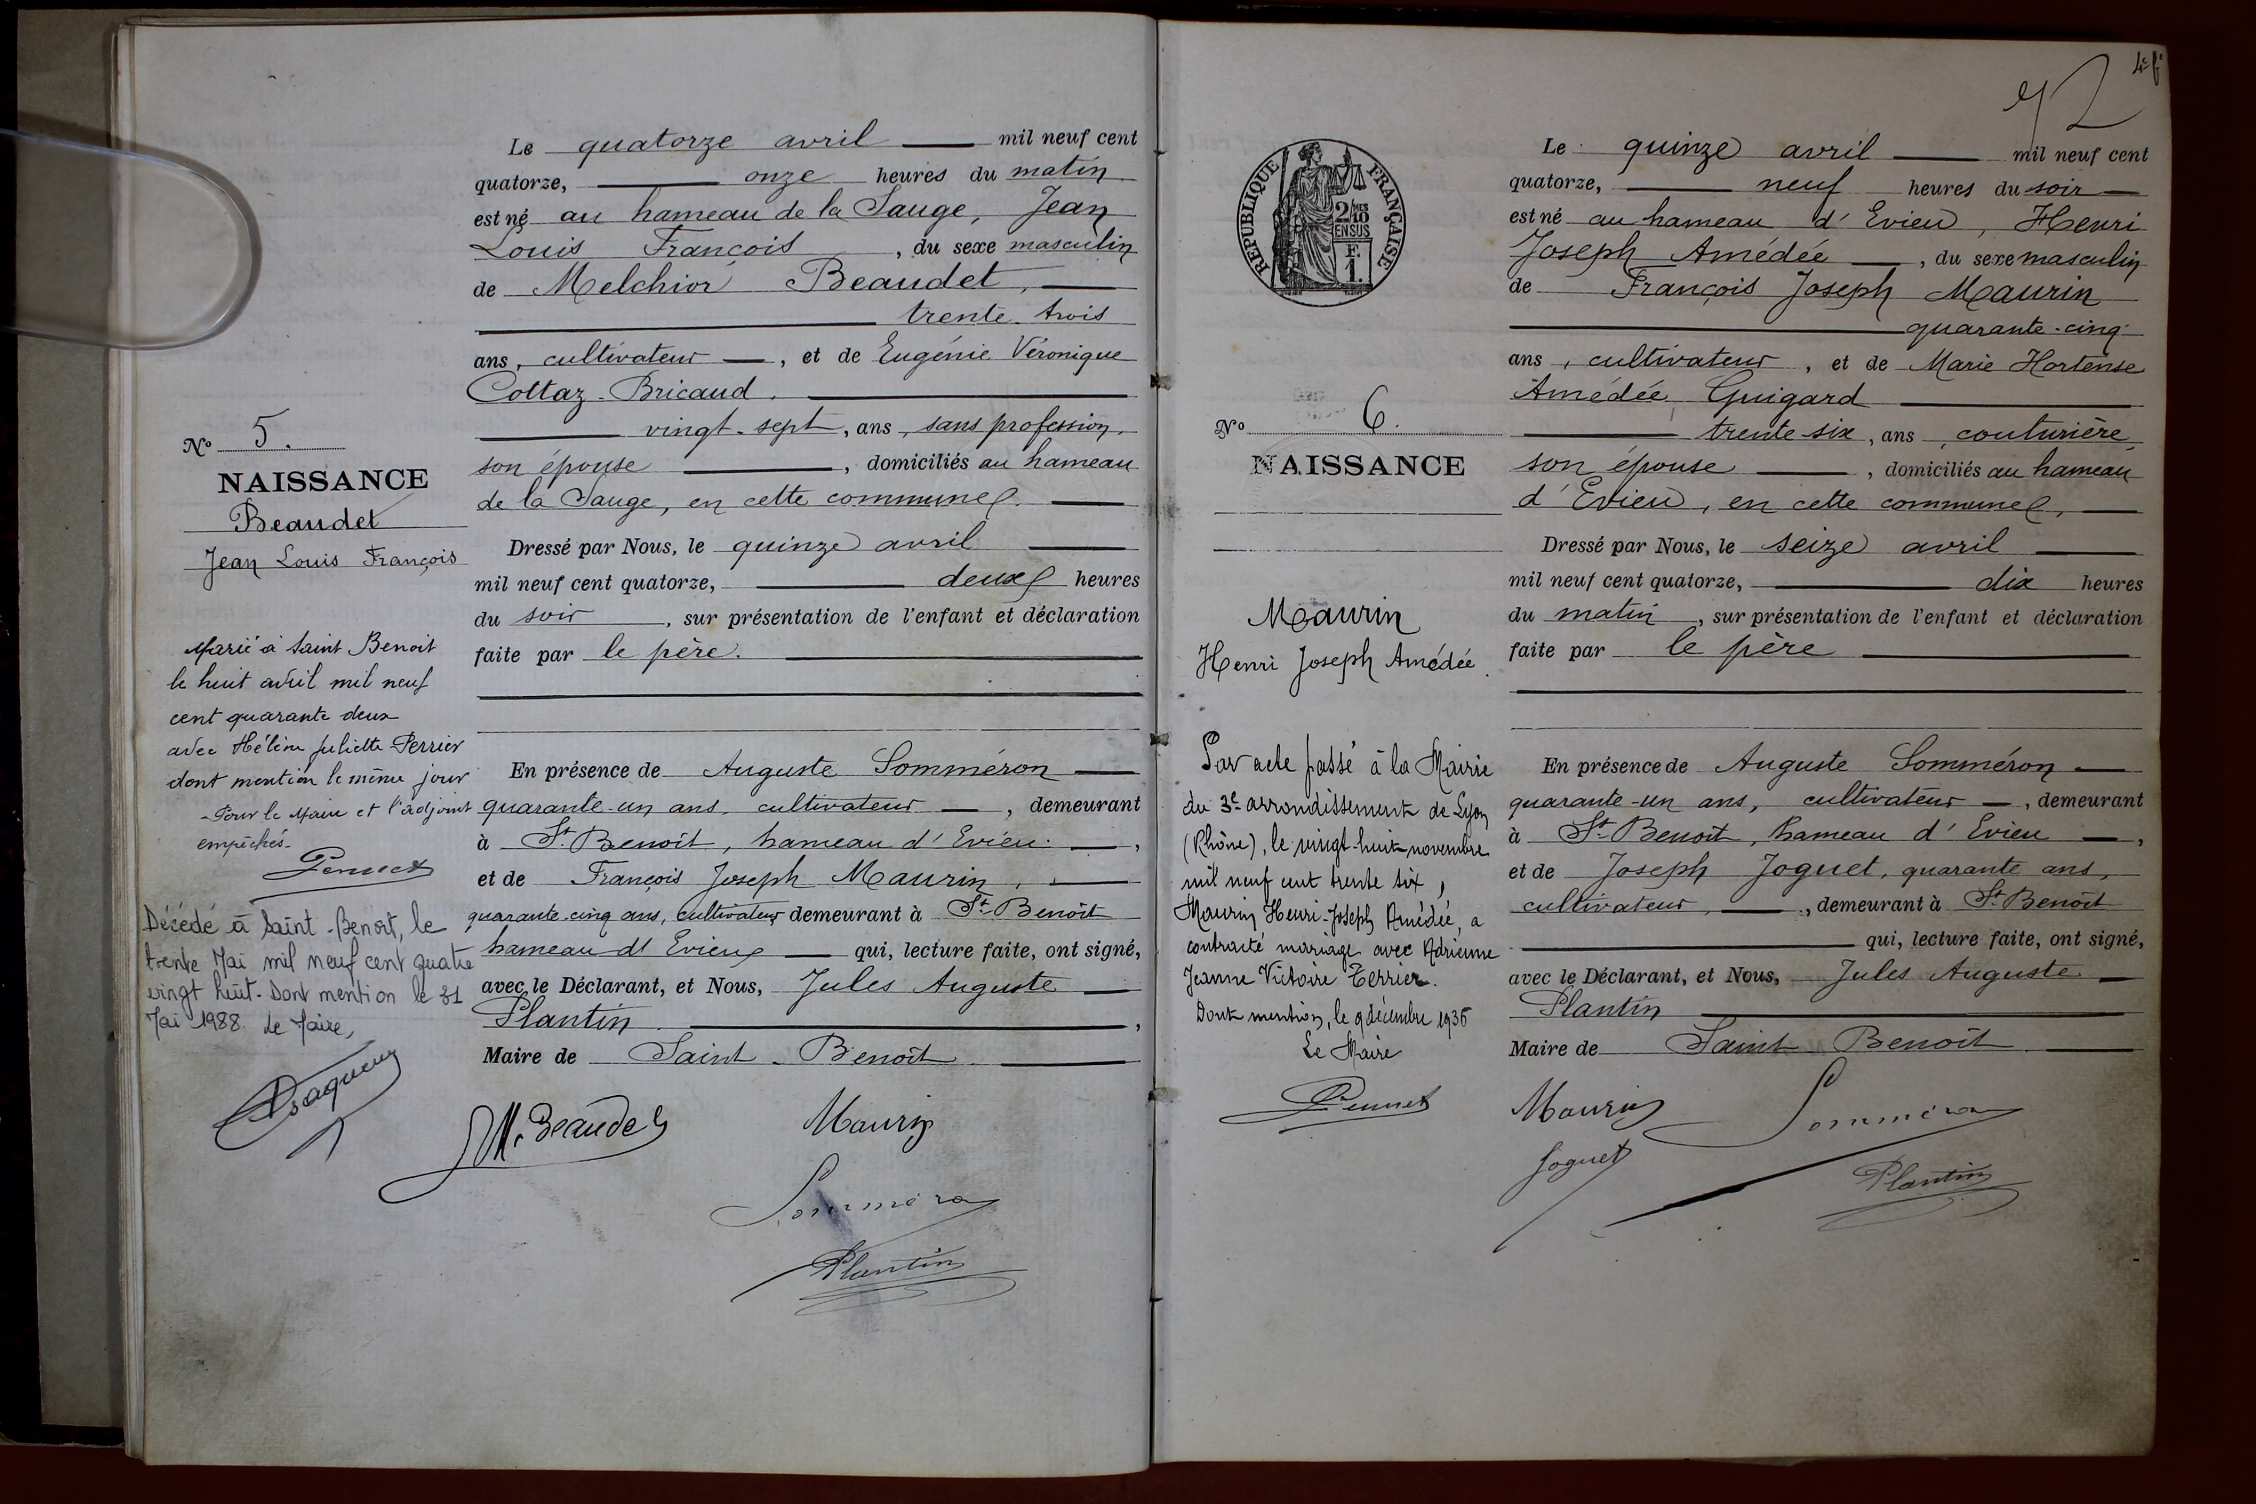 Le quatorze avril mil neuf cent
quatorze, onze heures du matin
est né au hameau de la Sauge, Jean
Louis François, du sexe masculin
de Melchior Beaudet,
trente-trois
ans, cultivateur, et de Eugénie Véronique
Cottaz-Bricaud.
vingt-sept, ans, sans profession,
son épouse, domiciliés au hameau
de la Sauge, en cette commune.
Dressé par Nous, le quinze avril
mil neuf cent quatorze, deux heures
du soir, sur présentation de l'enfant et déclaration
faite par le père.
En présence de Auguste Somméron
quarante-un ans, cultivateur, demeurant
à St-Benoît, hameau d'Evieu,
et de François Joseph Maurin,
quarante-cinq ans, cultivateur demeurant à St-Benoît
hameau d'Evieu qui, lecture faite, ont signé,
avec le Déclarant, et Nous, Jules Auguste
Plantin,
Maire de Saint-Benoît
M. Beaudet
Maurin
Somméron
Plantin
No 5.
NAISSANCE
Beaudet
Jean Louis François
Marié à Saint Benoit
le huit avril mil neuf
cent quarante deux
avec Hélène Juliette Perrier
dont mention le même jour
Pour le Maire et l'adjoint
empêchés
Décédé à Saint-Benoît, le
trente Mai mil neuf cent quatre
vingt huit. Dont mention le 31
Mai 1988. Le Maire,
2
REPUBLIQUE FRANÇAISE
2/10 EN SUS
F.
1.
Le quinze avril mil neuf cent
quatorze, neuf heures du soir
est né au hameau d'Evieu, Henri
Joseph Amédée, du sexe masculin
de François Joseph Maurin
quarante-cinq
ans, cultivateur, et de Marie Hortense
Amédée Guigard
trente-six, ans, couturière,
son épouse, domiciliés au hameau
d'Evieu, en cette commune,
Dressé par Nous, le seize avril
mil neuf cent quatorze, dix heures
du matin, sur présentation de l'enfant et déclaration
faite par le père
En présence de Auguste Somméron
quarante-un ans, cultivateur, demeurant
à St-Benoît, hameau d'Evieu,
et de Joseph Joguet, quarante ans,
cultivateur, demeurant à St-Benoît
qui, lecture faite, ont signé,
avec le Déclarant, et Nous, Jules Auguste
Plantin
Maire de Saint-Benoît
Maurin
Somméron
Joguet
Plantin
No 6.
NAISSANCE
Maurin
Henri Joseph Amédée
Par acte passé à la Mairie
du 3e arrondissement de Lyon
(Rhône), le vingt-huit novembre
mil neuf cent trente six,
Maurin Henri-Joseph Amédée, a
contracté mariage avec Adrienne
Jeanne Victoire Terrier.
Dont mention, le 9 décembre 1936
Le Maire